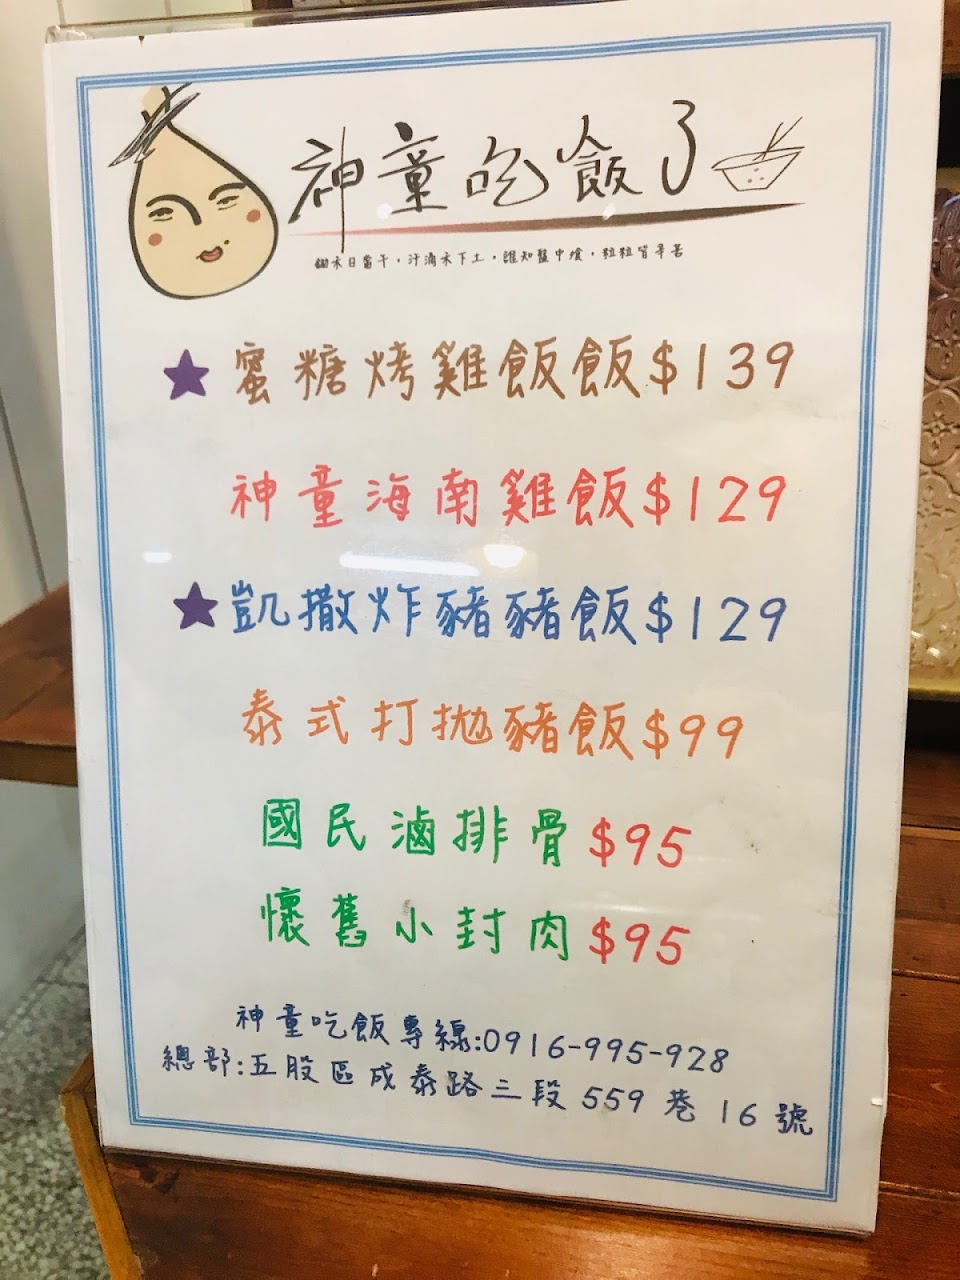 神童吃飯了
鋤禾日當午，汗滴禾下土，誰知盤中飧，粒粒皆辛苦
★蜜糖烤雞飯飯$139
神童海南雞飯$129
★凱撒炸豬豬飯$129
泰式打拋豬飯$99
國民滷排骨$95
懷舊小封肉$95
神童吃飯專線:0916-995-928
總部:五股區成泰路三段559巷16號